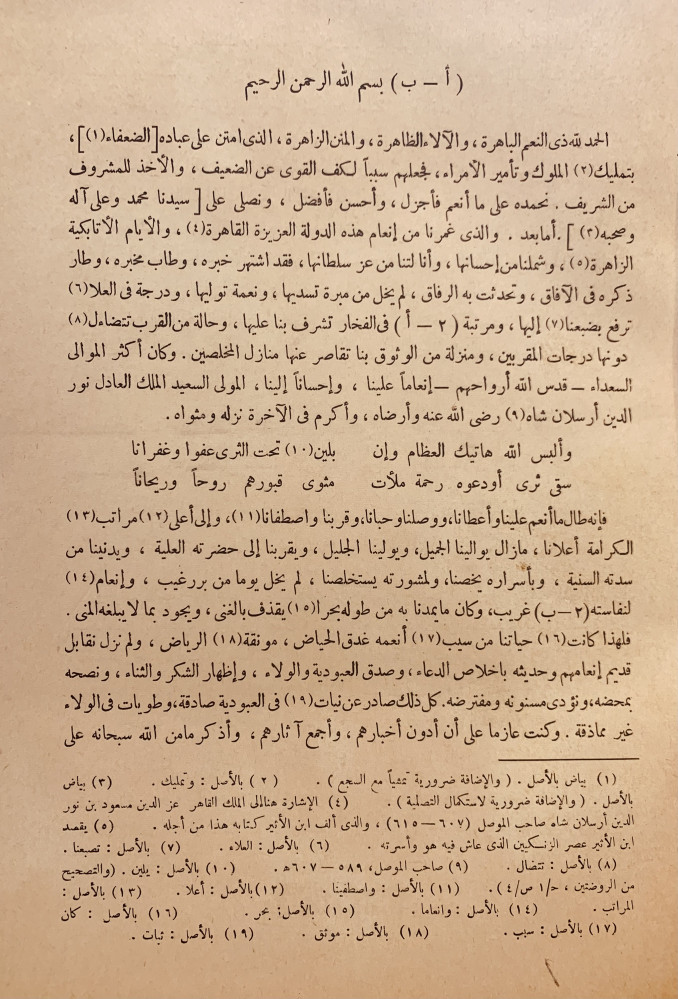 ( أ — ب ) بسم الله الرحمن الرحيم
الحمد لله ذى النعم الباهرة ، والآلاء الظاهرة ، والمنن الزاهرة ، الذى امتن على عباده [ الضعفاء (١) ] ،
بتمليك (٢) الملوك وتأمير الأمراء ، فجعلهم سبباً لكف القوى عن الضعيف ، والأخذ للمشروف
من الشريف . نحمده على ما أنعم فأجزل ، وأحسن فأفضل ، ونصلى على [ سيدنا محمد وعلى آله
وصحبه (٣) ] . أما بعد . والذى غمرنا من إنعام هذه الدولة العزيزة القاهرة (٤) ، والأيام الأتابكية
الزاهرة (٥) ، وشملنا من إحسانها ، وأنالتنا من عز سلطانها ، فقد اشتهر خبره ، وطاب مخبره ، وطار
ذكره فى الآفاق ، وتحدثت به الرفاق ، لم يخل من مبرة تسديها ، ونعمة توليها ، ودرجة فى العلا (٦)
ترفع بضبعنا (٧) إليها ، ومرتبة ( ٢ — أ ) فى الفخار تشرف بنا عليها ، وحالة من القرب تتضاءل (٨)
دونها درجات المقربين ، ومنزلة من الوثوق بنا تقاصر عنها منازل المخلصين . وكان أكثر الموالى
السعداء — قدس الله أرواحهم — إنعاماً علينا ، وإحساناً إلينا ، المولى السعيد الملك العادل نور
الدين أرسلان شاه (٩) رضى الله عنه وأرضاه ، وأكرم فى الآخرة نزله ومثواه .
وألبس الله هاتيك العظام وإن بلين (١٠) تحت الثرى عفوا وغفرانا
سقى ثرى أودعوه رحمة ملأت مثوى قبورهم روحاً وريحاناً
فإنه طال ما أنعم علينا وأعطانا ، ووصلنا وحبانا ، وقربنا واصطفانا (١١) ، وإلى أعلى (١٢) مراتب (١٣)
الكرامة أعلانا ، مازال يوالينا الجميل ، ويولينا الجليل ، ويقربنا إلى حضرته العلية ، ويدنينا من
سدته السنية ، وبأسراره يخصنا ، ولمشورته يستخلصنا ، لم يخل يوما من بر رغيب ، وإنعام (١٤)
لنفاسته ( ٢ — ب ) غريب ، وكان ما يمدنا به من طوله بحرا (١٥) يقذف بالغنى ، ويجود بما لا يبلغه المنى .
فلهذا كانت (١٦) حياتنا من سيب (١٧) أنعمه غدق الحياض ، مونقة (١٨) الرياض ، ولم نزل نقابل
قديم إنعامهم وحديثه باخلاص الدعاء ، وصدق العبودية والولاء ، وإظهار الشكر والثناء ، ونصحه
بمحضه ، ونؤدى مسنونه ومفترضه . كل ذلك صادر عن نيات (١٩) فى العبودية صادقة ، وطويات فى الولاء
غير مماذقة . وكنت عازما على أن أدون أخبارهم ، وأجمع آثارهم ، وأذكر مامن الله سبحانه على
(١) بياض بالأصل . ( والإضافة ضرورية تمشياً مع السجع ) . (٢) بالأصل : وتمليك . (٣) بياض
بالأصل . ( والإضافة ضرورية لاستكمال التصلية ) . (٤) الإشارة هنا إلى الملك القاهر عز الدين مسعود بن نور
الدين أرسلان شاه صاحب الموصل (٦٠٧ — ٦١٥) ، والذى ألف ابن الأثير كتابه هذا من أجله . (٥) يقصد
ابن الأثير عصر الزنكيين الذى عاش فيه هو وأسرته . (٦) بالأصل : العلاء . (٧) بالأصل : تصبعنا .
(٨) بالأصل : تتضال . (٩) صاحب الموصل ، ٥٨٩ — ٦٠٧ ه . (١٠) بالأصل : يلين . ( والتصحيح
من الروضتين ، ح/١ ص/٤ ) . (١١) بالأصل : واصطفينا . (١٢) بالأصل : أعلا . (١٣) بالأصل :
المراتب . (١٤) بالأصل : وانعاما . (١٥) بالأصل : بحر . (١٦) بالأصل : كان
(١٧) بالأصل : سبب . (١٨) بالأصل : موثق . (١٩) بالأصل : ثبات .